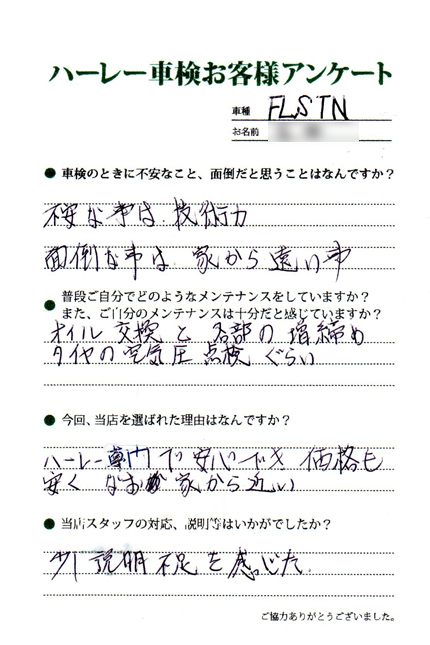 ハーレー車検お客様アンケート
車種 FLSTN
お名前
● 車検のときに不安なこと、面倒だと思うことはなんですか?
不安な事は 技術力
面倒な事は 家から遠い事
● 普段ご自分でどのようなメンテナンスをしていますか?
また、ご自分のメンテナンスは十分だと感じていますか?
オイル交換と各部の増締め
タイヤの空気圧点検ぐらい
● 今回、当店を選ばれた理由はなんですか?
ハーレー専門で安心でき 価格も
安く なお 家から近い
● 当店スタッフの対応、説明等はいかがでしたか?
少し説明不足を感じた。
ご協力ありがとうございました。